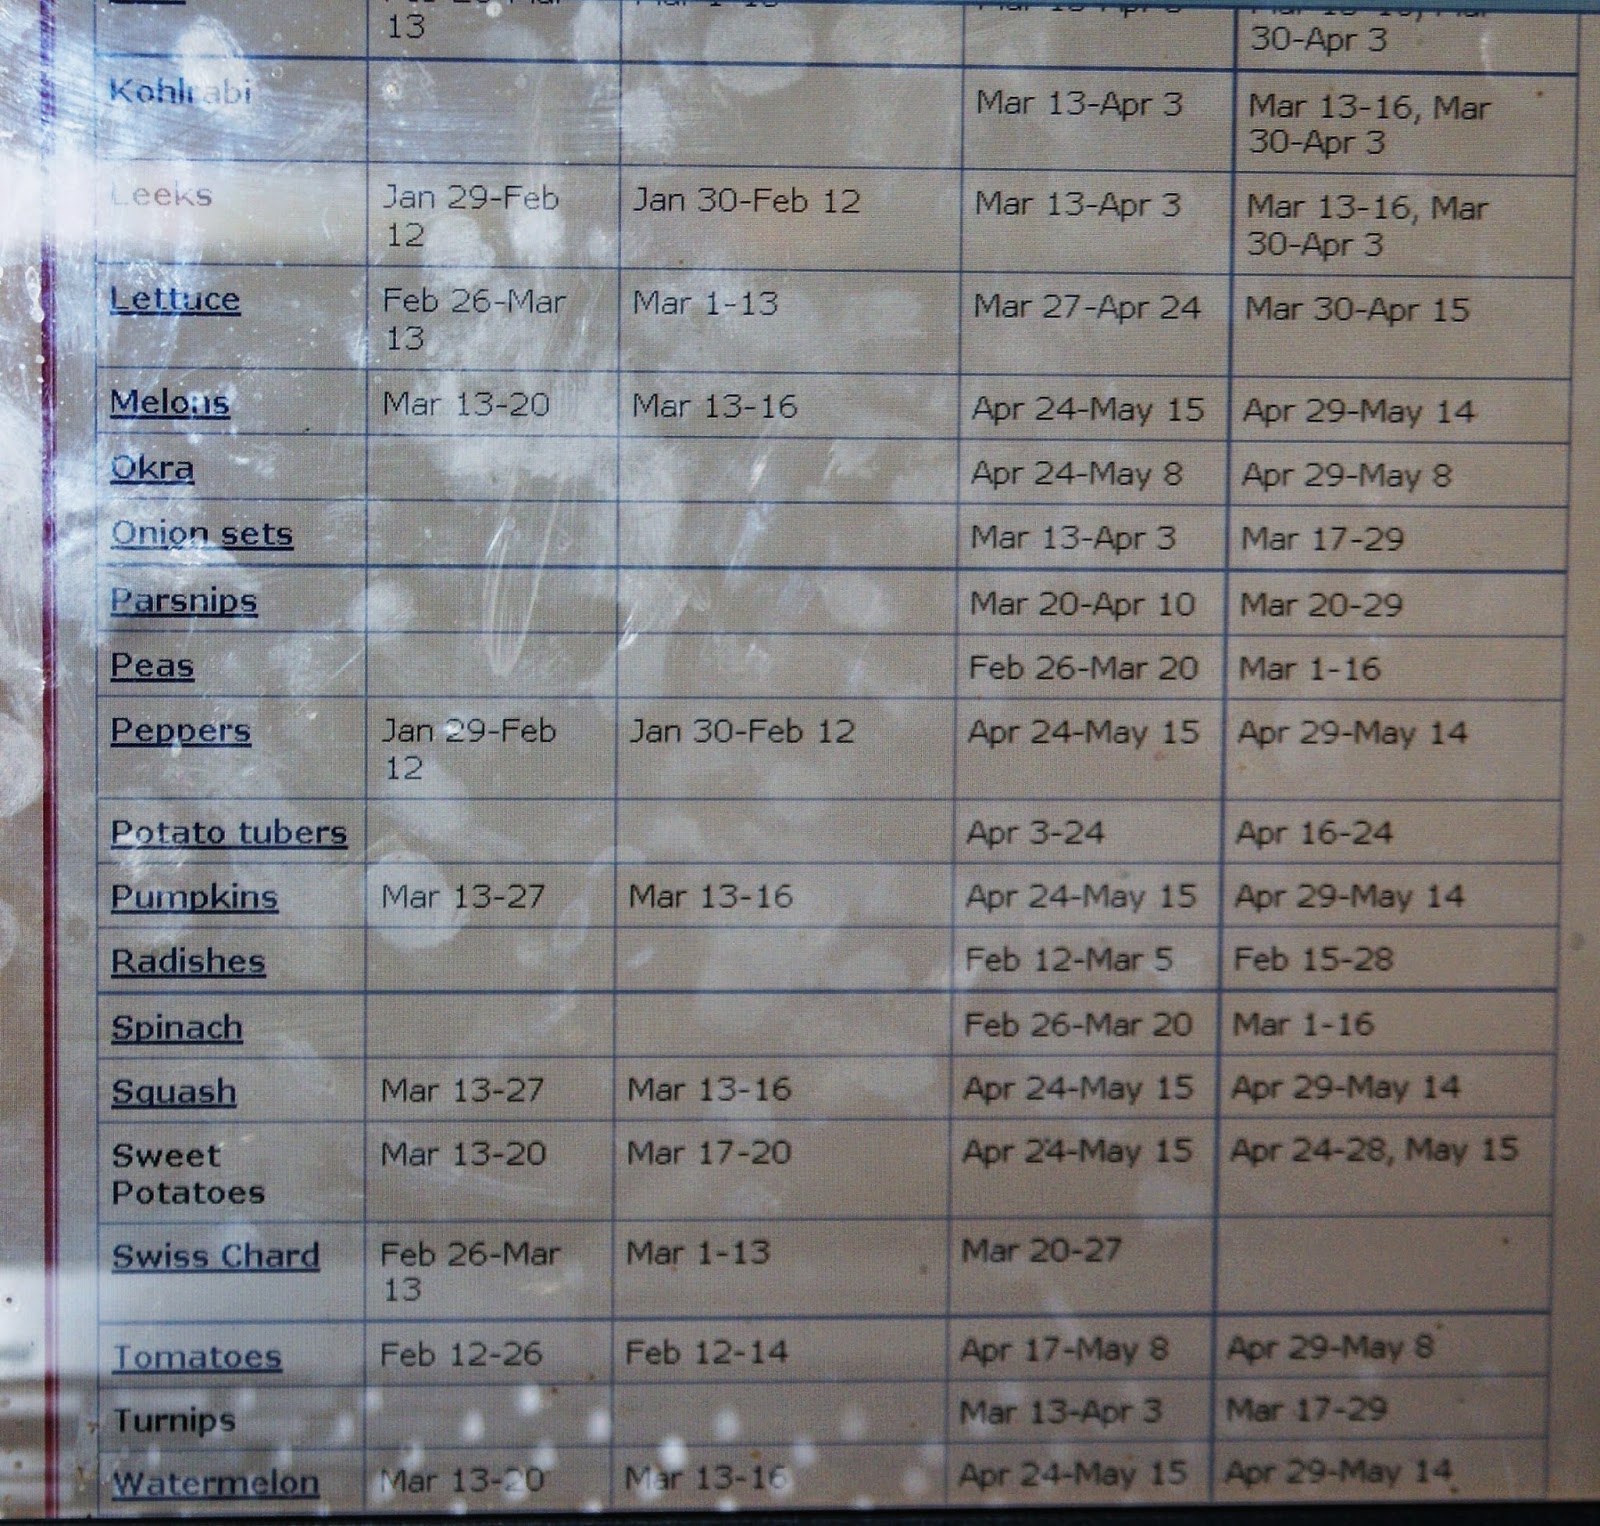 13
30-Apr 3
Kohlrabi Mar 13-Apr 3 Mar 13-16, Mar
30-Apr 3
Leeks Jan 29-Feb Jan 30-Feb 12 Mar 13-Apr 3 Mar 13-16, Mar
12 30-Apr 3
Lettuce Feb 26-Mar Mar 1-13 Mar 27-Apr 24 Mar 30-Apr 15
13
Melons Mar 13-20 Mar 13-16 Apr 24-May 15 Apr 29-May 14
Okra Apr 24-May 8 Apr 29-May 8
Onion sets Mar 13-Apr 3 Mar 17-29
Parsnips Mar 20-Apr 10 Mar 20-29
Peas Feb 26-Mar 20 Mar 1-16
Peppers Jan 29-Feb Jan 30-Feb 12 Apr 24-May 15 Apr 29-May 14
12
Potato tubers Apr 3-24 Apr 16-24
Pumpkins Mar 13-27 Mar 13-16 Apr 24-May 15 Apr 29-May 14
Radishes Feb 12-Mar 5 Feb 15-28
Spinach Feb 26-Mar 20 Mar 1-16
Squash Mar 13-27 Mar 13-16 Apr 24-May 15 Apr 29-May 14
Sweet Mar 13-20 Mar 17-20 Apr 24-May 15 Apr 24-28, May 15
Potatoes
Swiss Chard Feb 26-Mar Mar 1-13 Mar 20-27
13
Tomatoes Feb 12-26 Feb 12-14 Apr 17-May 8 Apr 29-May 8
Turnips Mar 13-Apr 3 Mar 17-29
Watermelon Mar 13-20 Mar 13-16 Apr 24-May 15 Apr 29-May 14